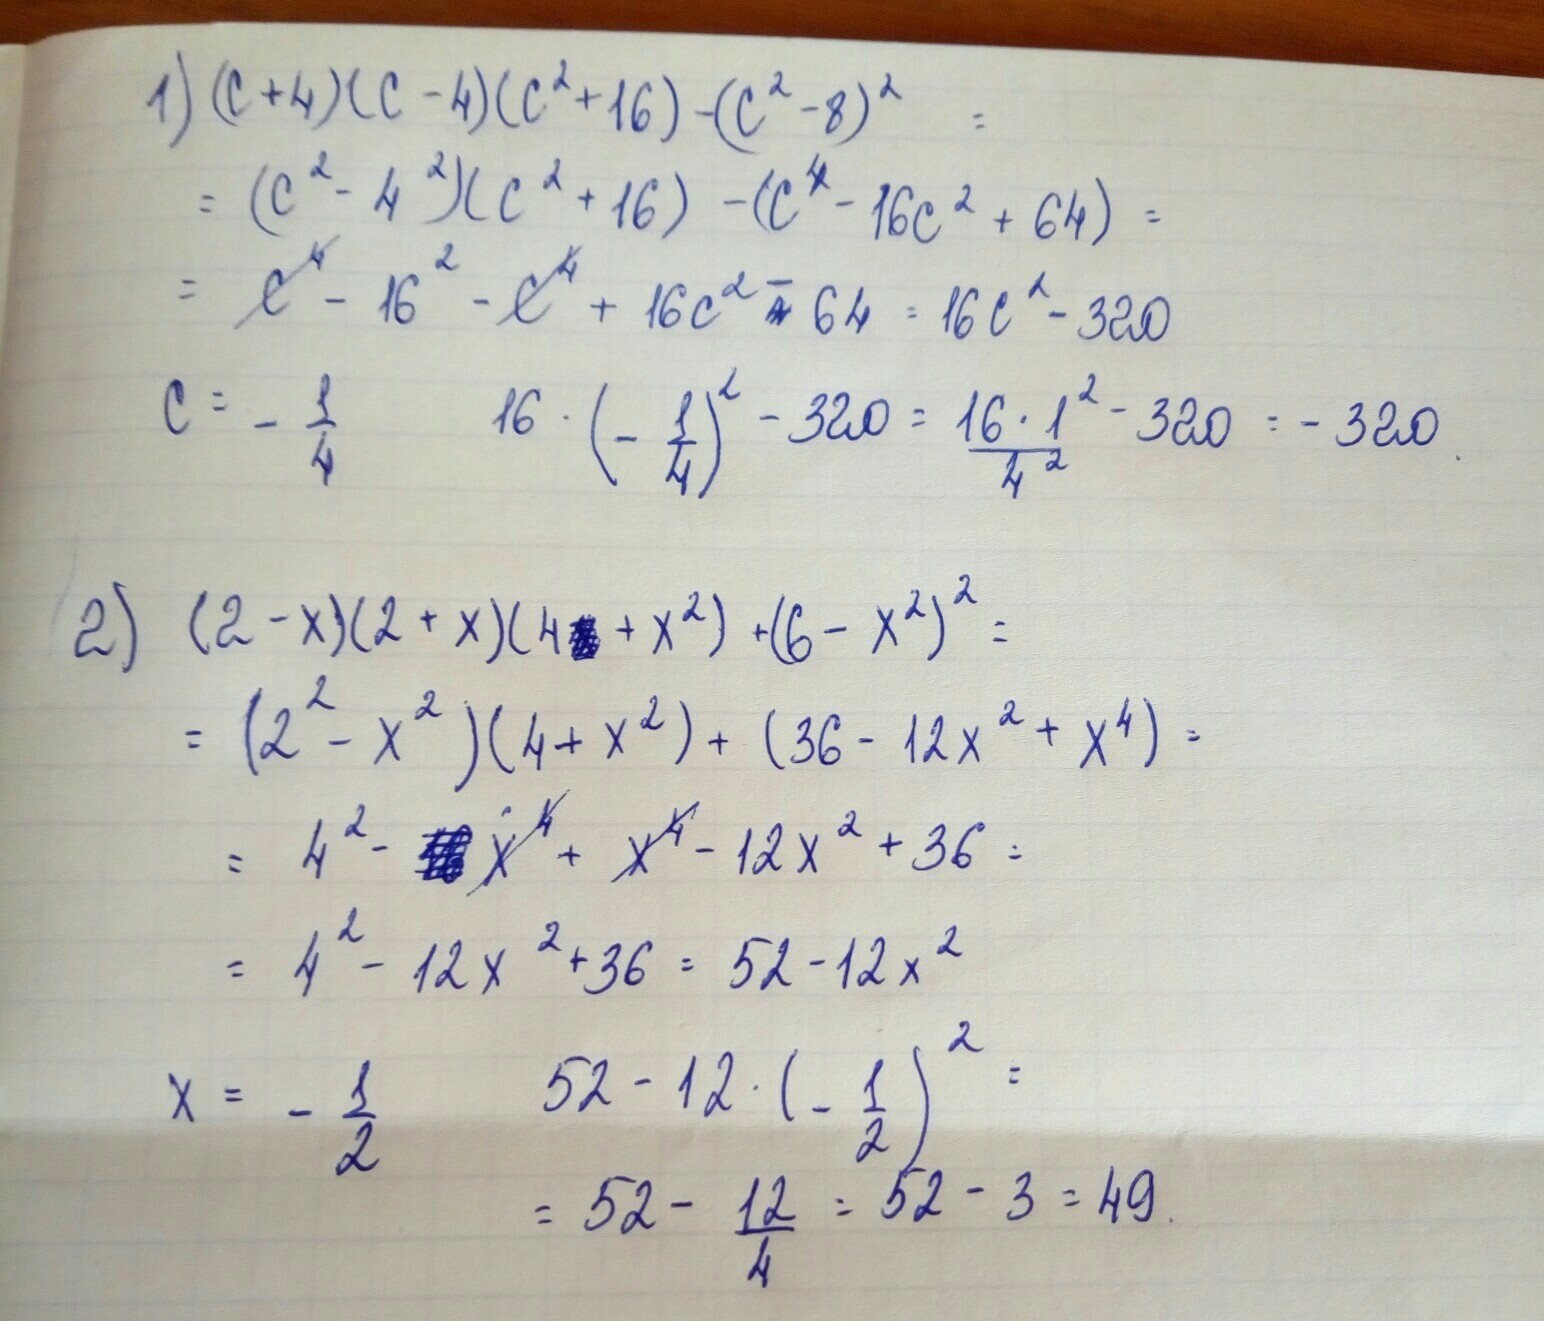 1) (c+4)(c-4)(c²+16)-(c²-8)² =
= (c²-4²)(c²+16) -(c⁴-16c²+64) =
= c⁴ - 16² - c⁴ + 16c² - 64 = 16c² - 320
c = -1/4 16·(-1/4)² - 320 = 16·1²/4² - 320 = -320.
2) (2-x)(2+x)(4+x²)+(6-x²)² =
= (2²-x²)(4+x²)+(36-12x²+x⁴) =
= 4² - x⁴ + x⁴ - 12x² + 36 =
= 4² - 12x² + 36 = 52 - 12x²
x = -1/2 52 - 12·(-1/2)² =
= 52 - 12/4 = 52 - 3 = 49.